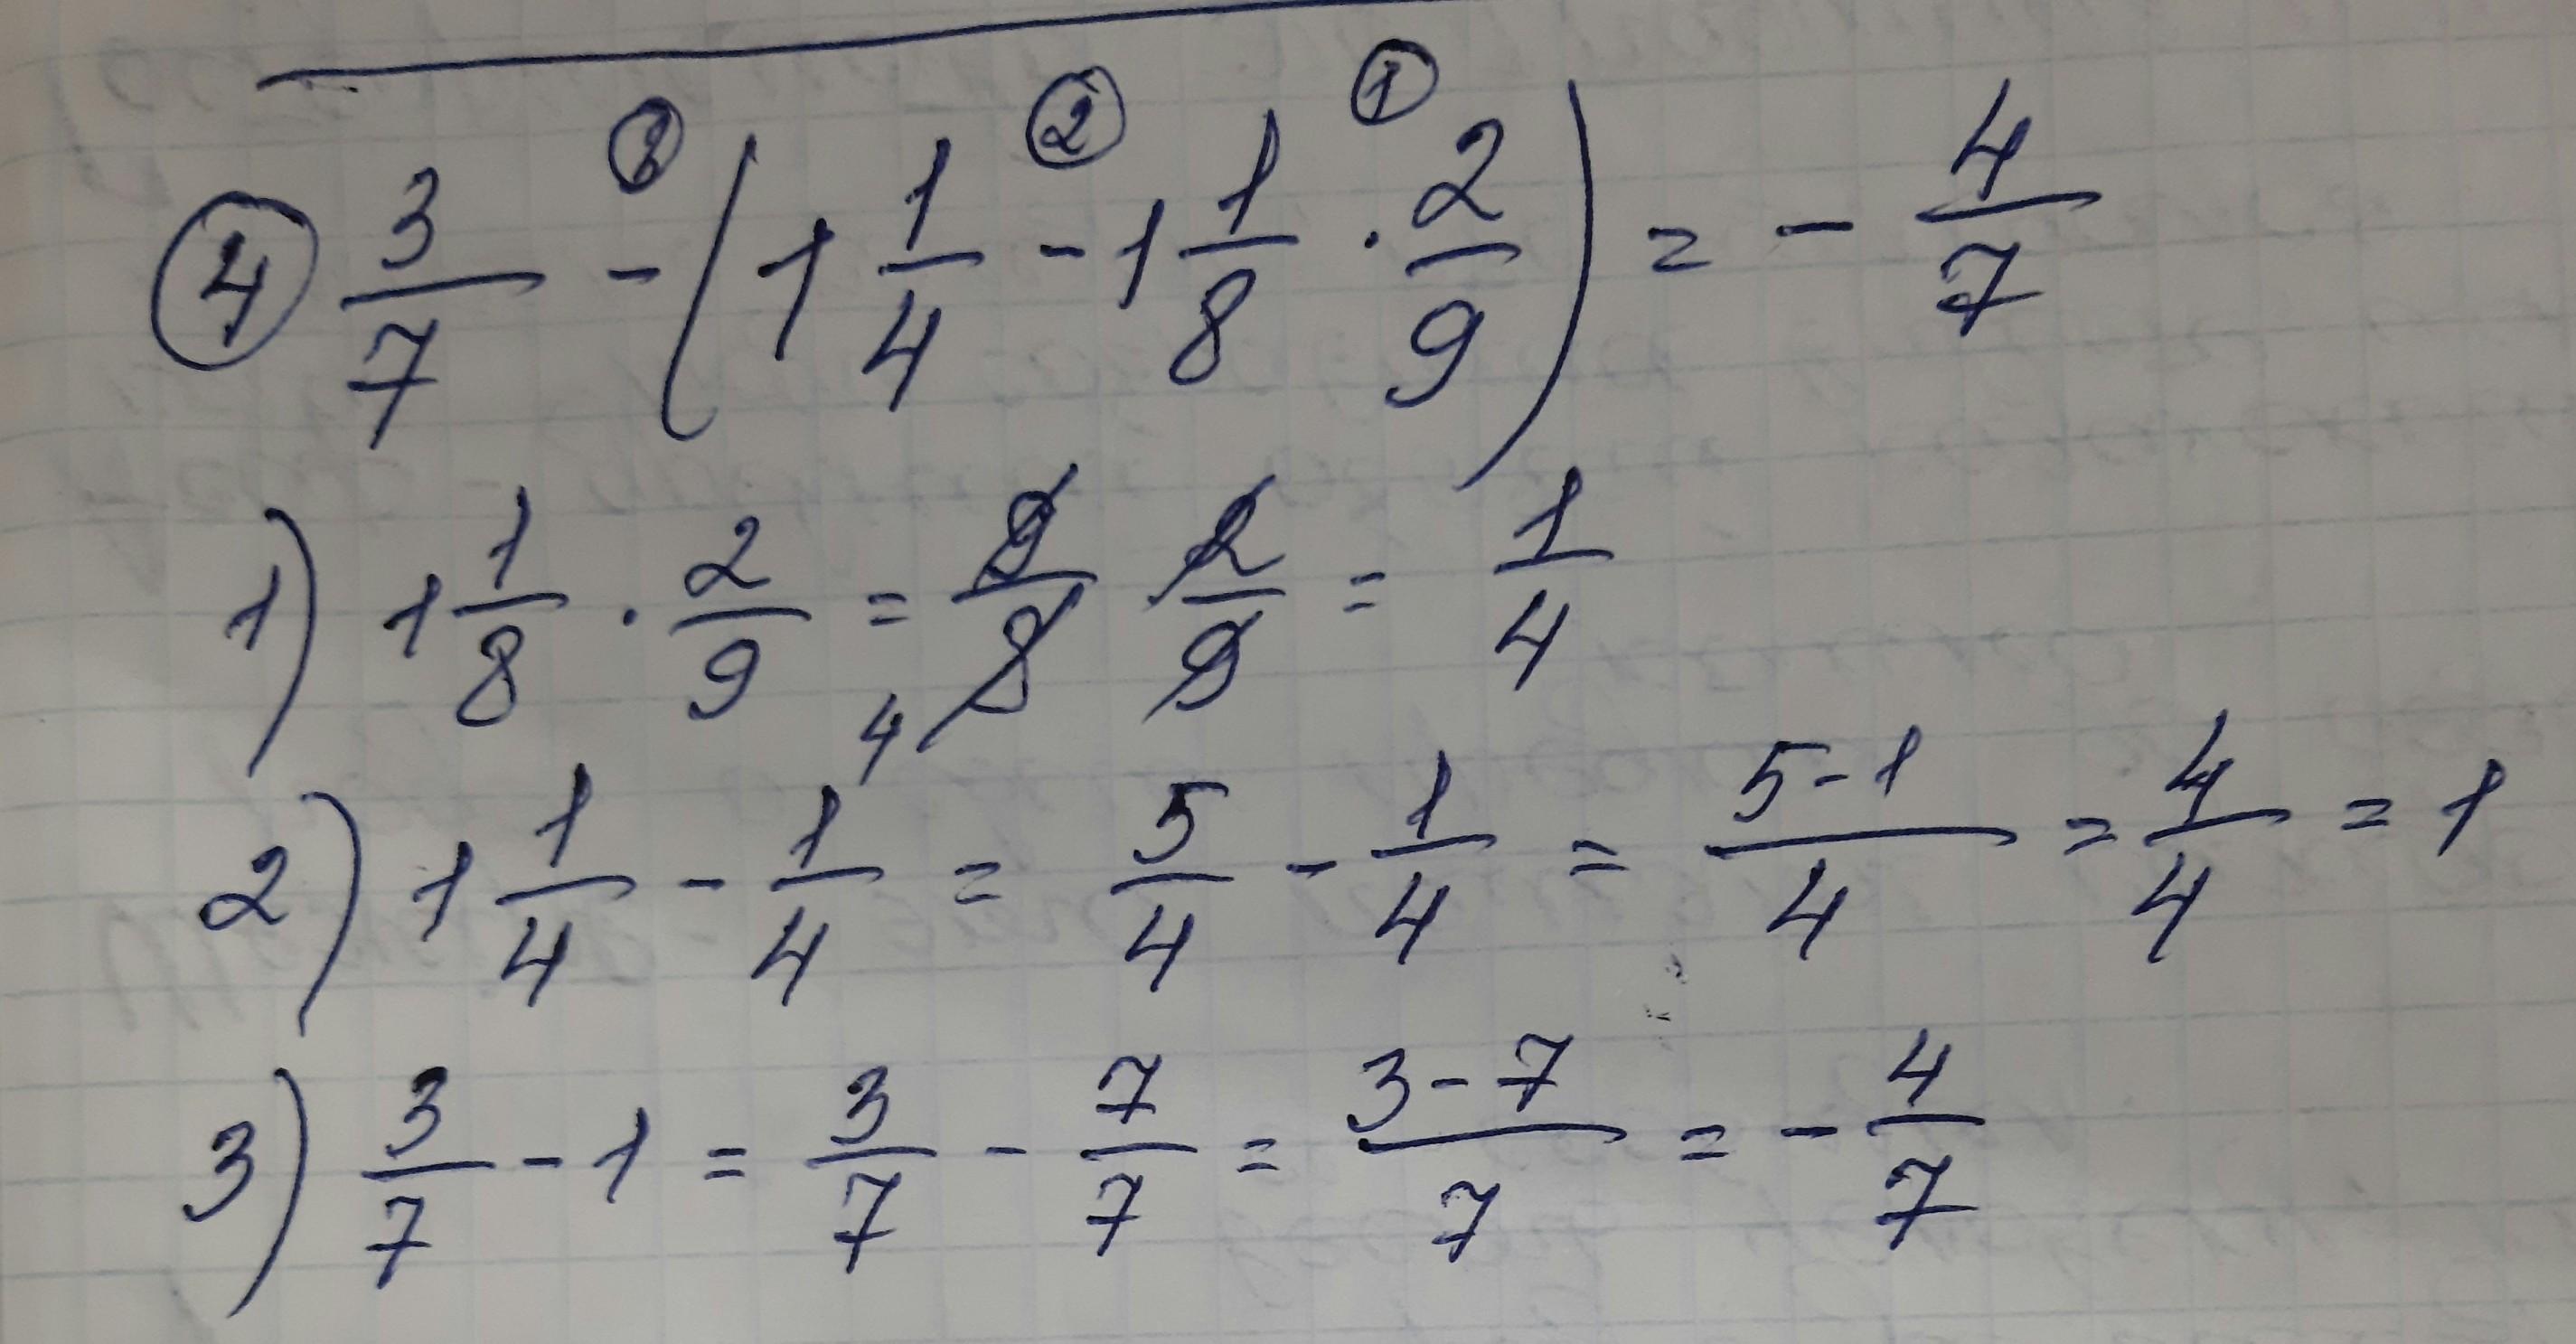 ③ ② ①
④ 3/7 - (1 1/4 - 1 1/8 · 2/9) = - 4/7
1) 1 1/8 · 2/9 = 9/8 2/9 = 1/4
4
2) 1 1/4 - 1/4 = 5/4 - 1/4 = 5-1/4 = 4/4 = 1
3) 3/7 - 1 = 3/7 - 7/7 = 3-7/7 = - 4/7